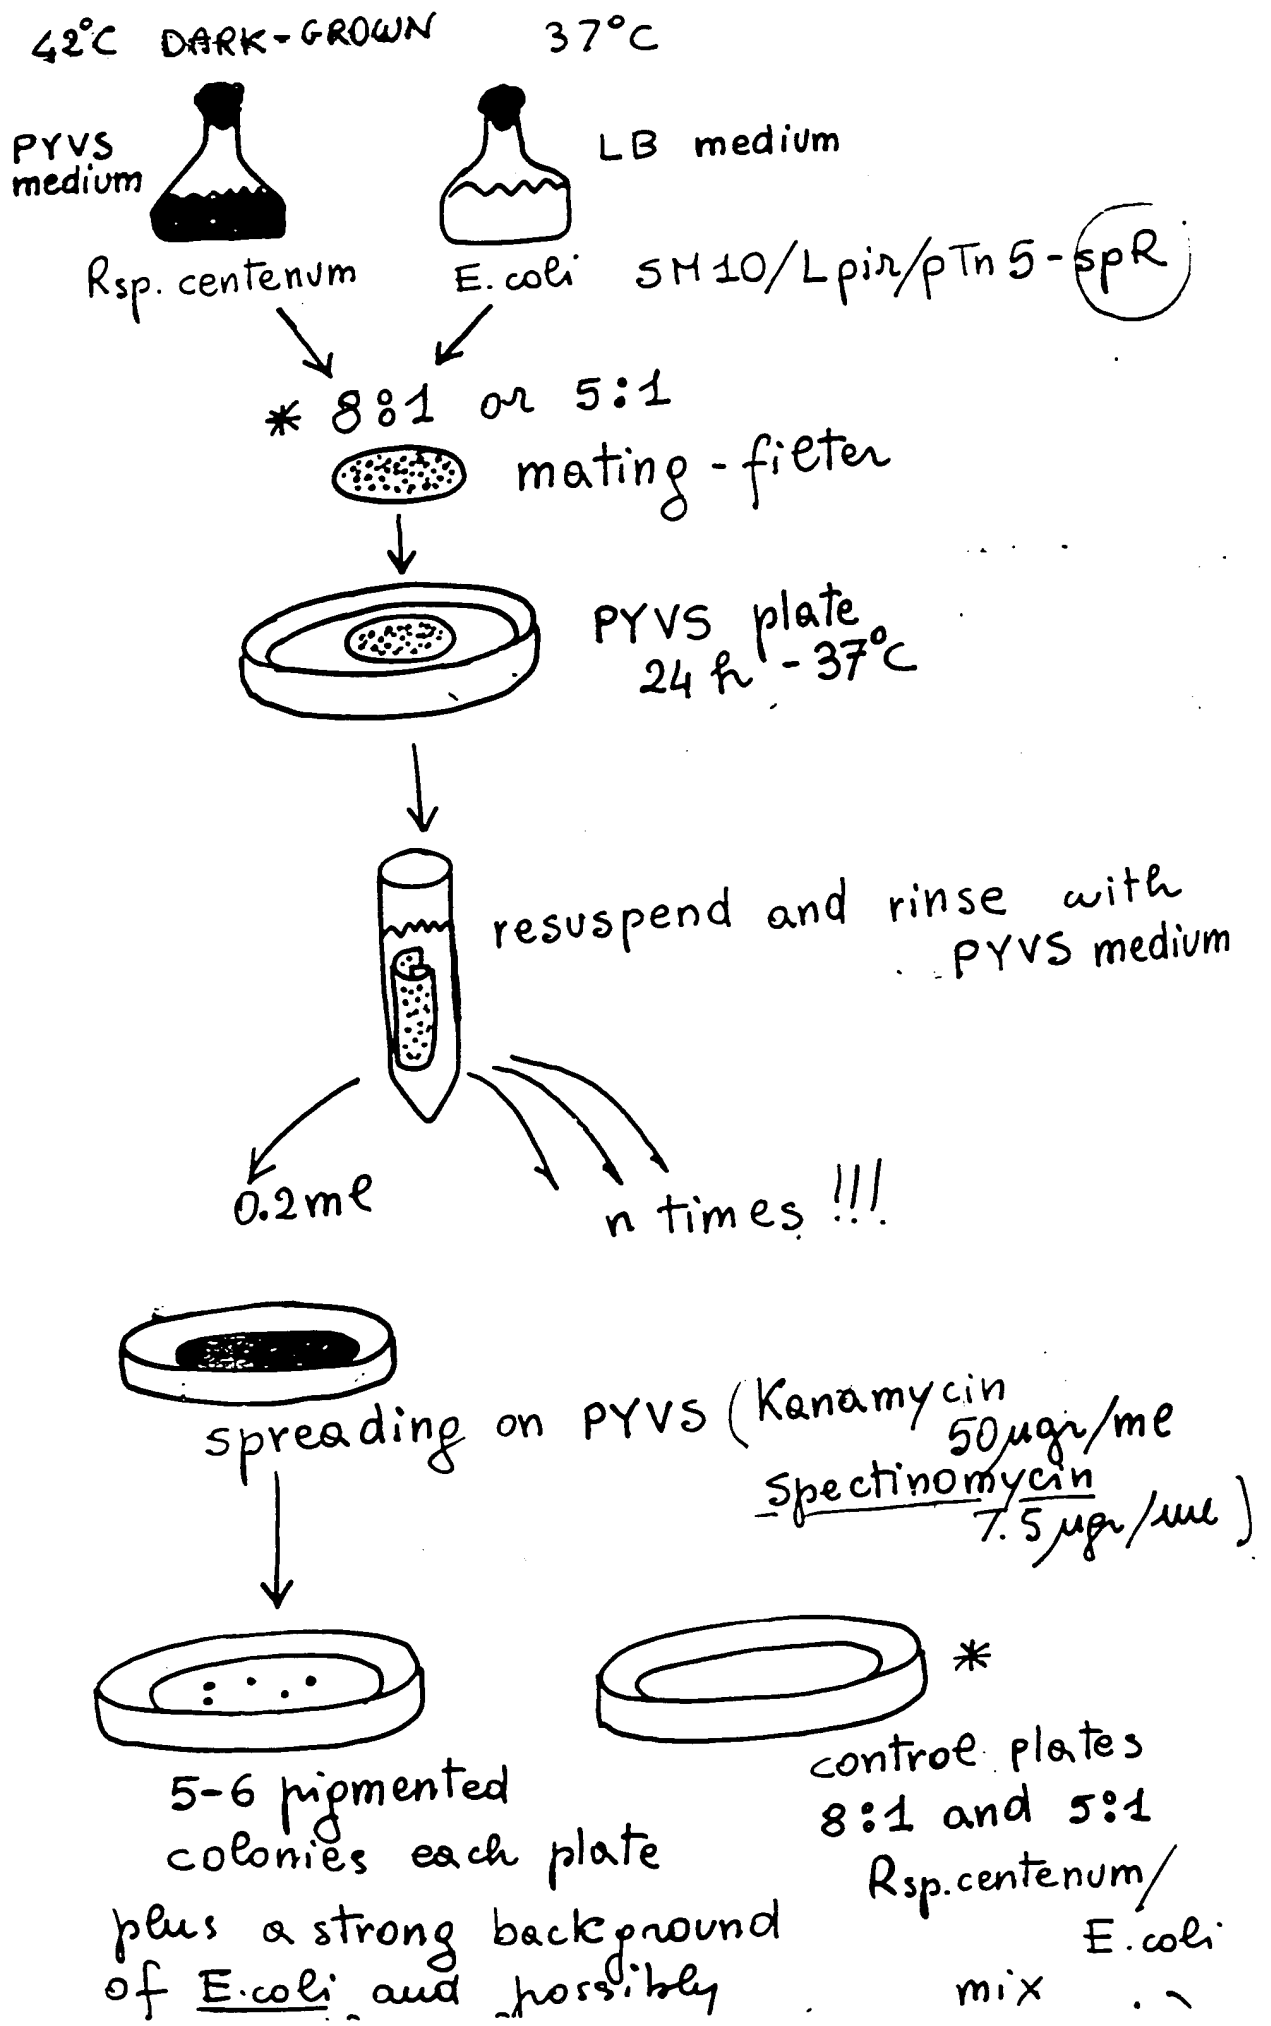 42°C DARK-GROWN 37°C
PYVS
medium
LB medium
Rsp. centenum E. coli SM10/Lpir/pTn5-spR
* 8:1 or 5:1
mating-filter
PYVS plate
24 h - 37°C
resuspend and rinse with
PYVS medium
0.2 ml
n times !!!
spreading on PYVS (Kanamycin
50 µgr/ml
Spectinomycin
7.5 µgr/ml)
*
5-6 pigmented
colonies each plate
plus a strong background
of E. coli and possibly
control plates
8:1 and 5:1
Rsp. centenum/
E. coli
mix